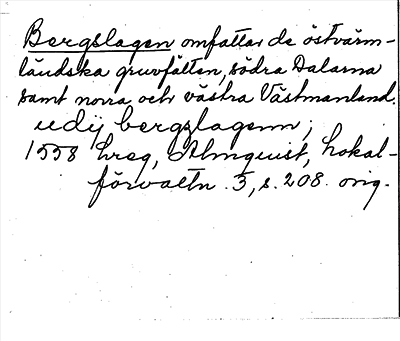 Bergslagen omfattar de östvärm-
ländska gruvfälten, södra Dalarna
samt norra och västra Västmanland.
udij bergzlagenn;
1558 hreg, Almquist, Lokal-
förvaltn. 3, s. 208. orig.